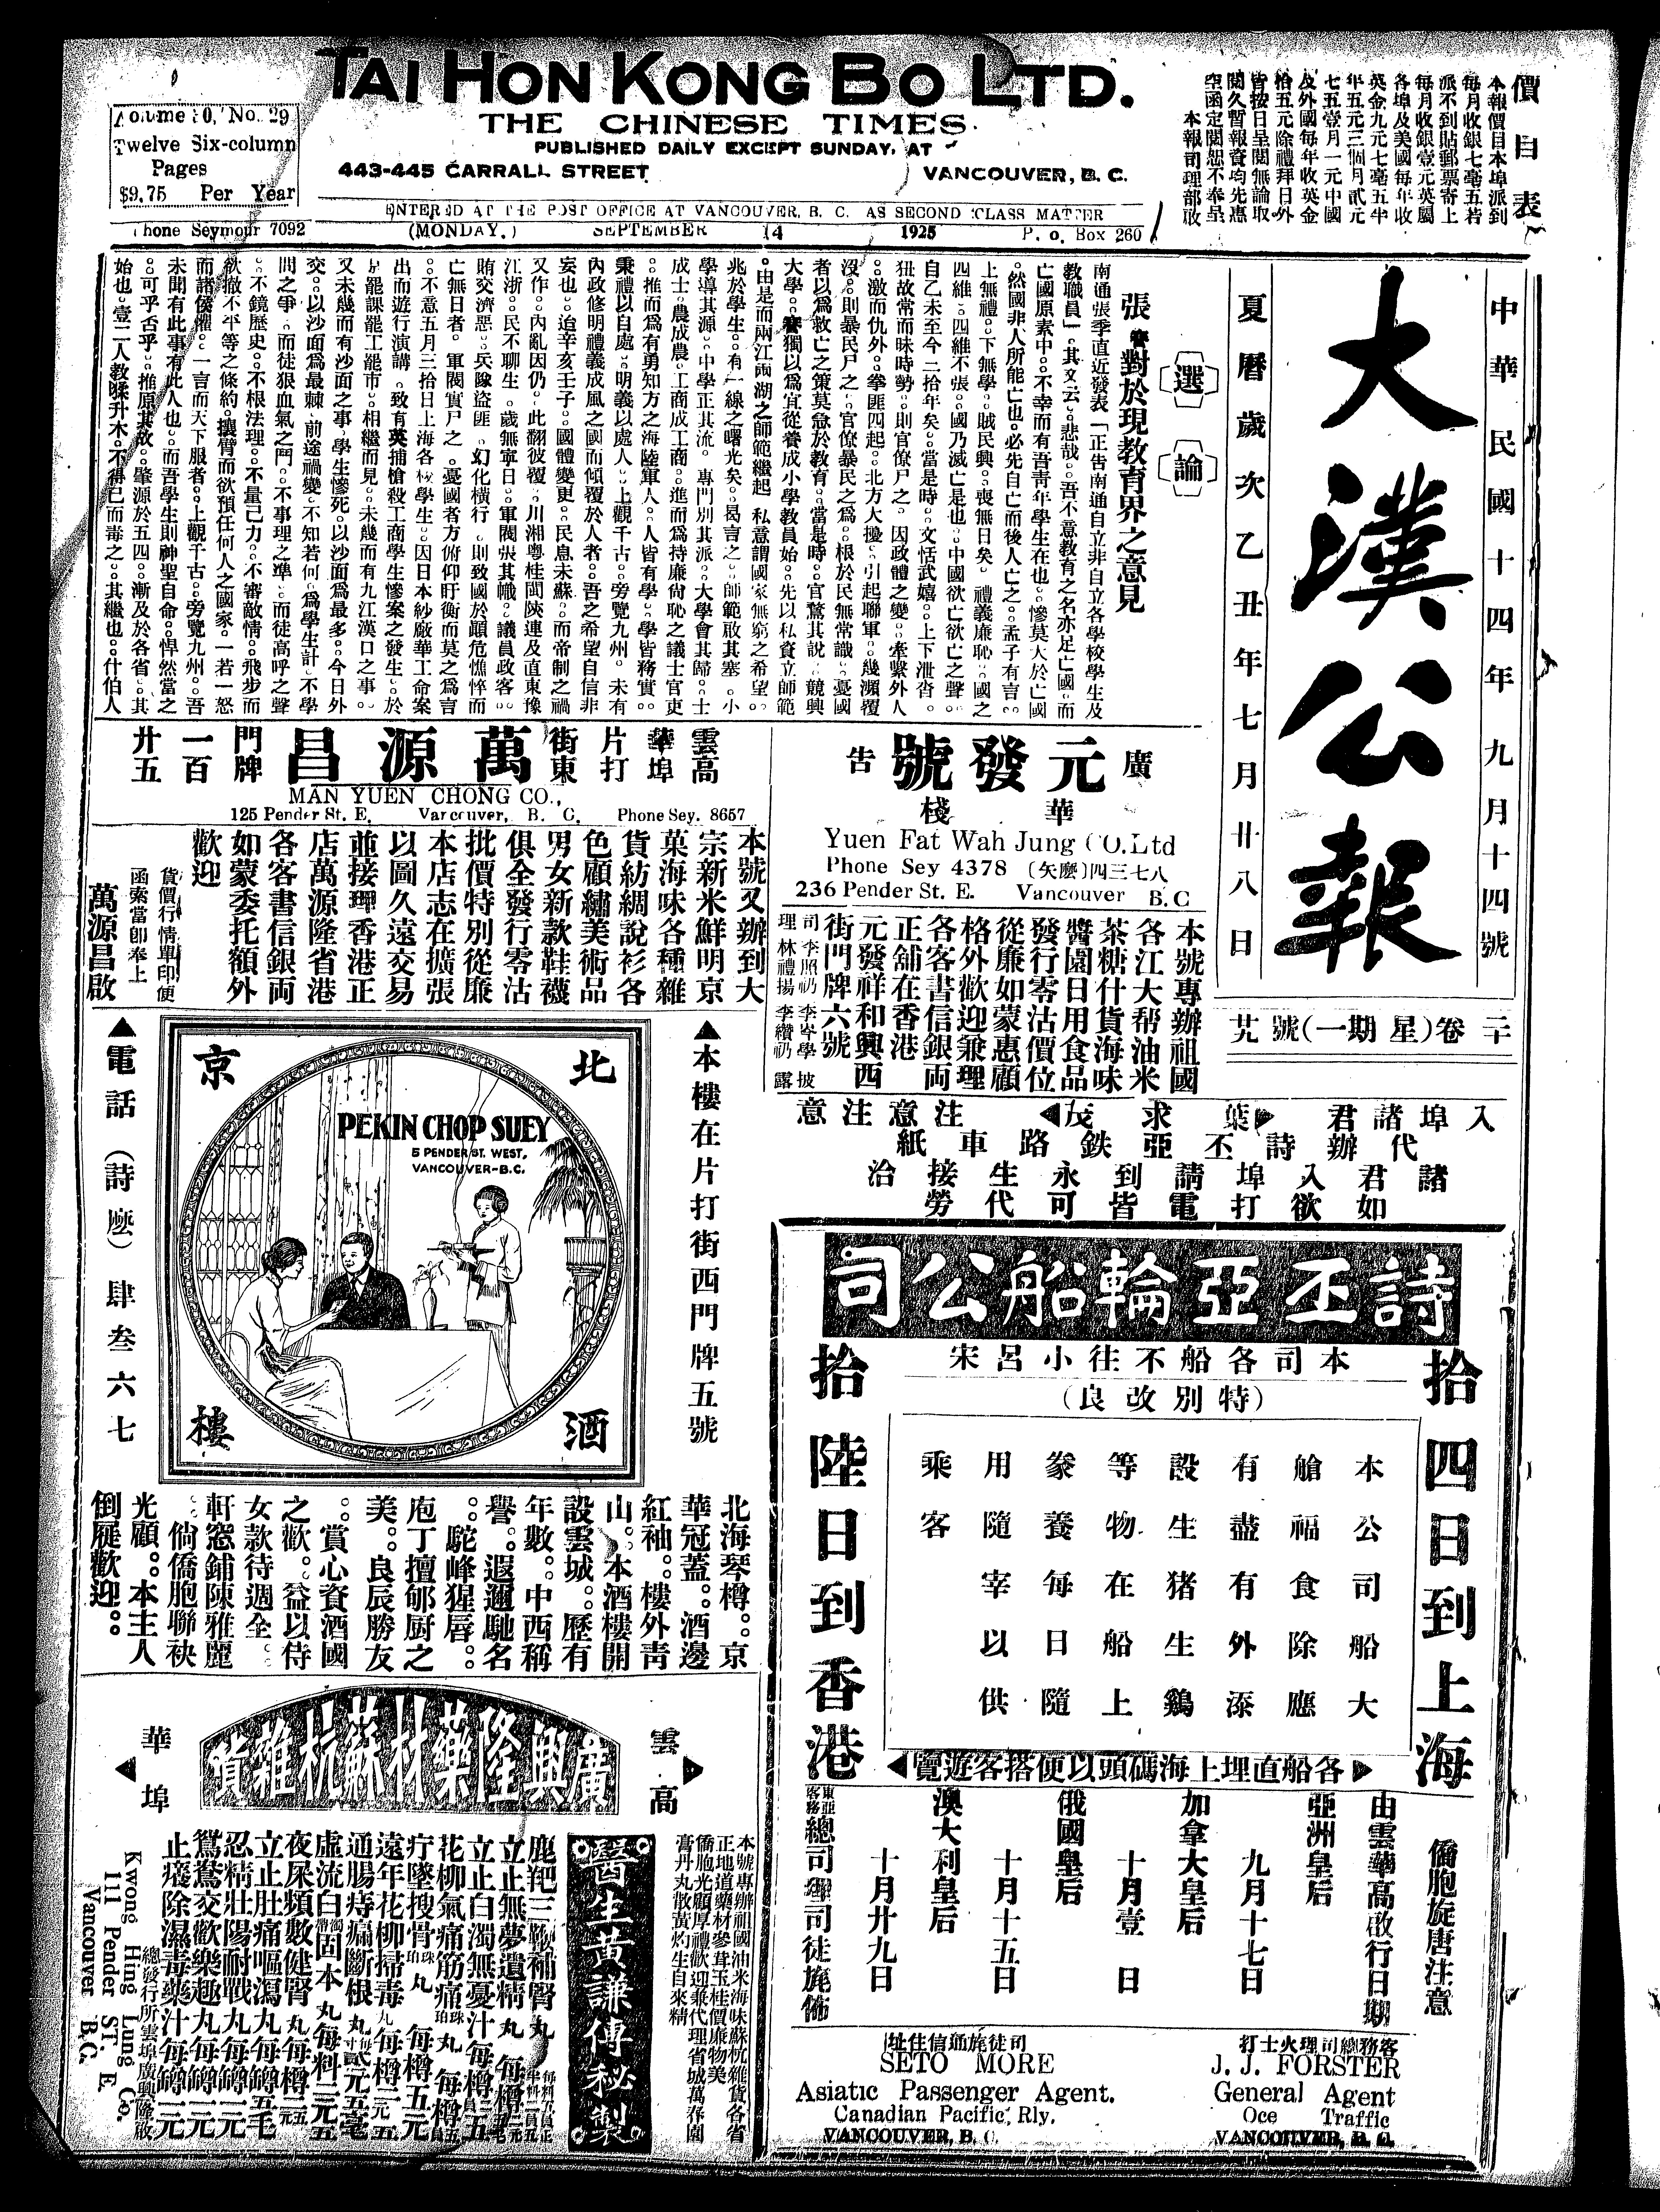 TAI HON KONG BO LTD.
THE CHINESE TIMES
PUBLISHED DAILY EXCEPT SUNDAY, AT
443-445 CARRALL STREET VANCOUVER, B. C.
Volume 20, No. 29
Twelve Six-column
Pages
$9.75 Per Year
ENTERED AT THE POST OFFICE AT VANCOUVER, B. C. AS SECOND CLASS MATTER
Phone Seymour 7092 (MONDAY.) SEPTEMBER 14 1925 P. O. Box 260
價目表
本報價目本埠派到
每月收銀七毫五若
派不到貼郵票寄上
每月收銀壹元英屬
各埠及美國每年收
英金九元七毫五半
年五元三個月貳元
七五壹月一元中國
及外國每年收英金
拾五元除禮拜日外
皆按日呈閱無論取
閱久暫報資均先惠
空函定閱恕不奉呈
本報司理部啟
中華民國十四年九月十四號
大漢公報
夏曆歲次乙丑年七月廿八日
二十卷(星期一)號廿九
選論
張謇對於現教育界之意見
南通張季直近發表「正告南通自立非自立各學校學生及
教職員」。其文云。悲哉。吾不意教育之名亦足亡國。而
亡國原素中。不幸而有吾青年學生在也。慘莫大於亡國
。然國非人所能亡也。必先自亡而後人亡之。孟子有言。
上無禮。下無學。賊民興。喪無日矣。禮義廉恥。國之
四維。四維不張。國乃滅亡是也。中國欲亡欲亡之聲。
自乙未至今二拾年矣。當是時。文恬武嬉。上下泄沓。
狃故常而昧時勢。則官僚尸之。因政體之變。牽繫外人
。激而仇外。拳匪四起。北方大擾。引起聯軍。幾瀕覆
沒。則暴民尸之。官僚暴民之爲。根於民無常識。憂國
者以爲救亡之策莫急於教育。當是時。官驚其說。競興
大學。謇獨以爲宜從養成小學教員始。先以私資立師範
。由是而兩江兩湖之師範繼起。私意謂國家無窮之希望。
兆於學生。有一線之曙光矣。曷言之。師範敢其塞。小
學導其源。中學正其流。專門別其派。大學會其歸。士
成士。農成農。工商成工商。進而爲持廉尙恥之議士官吏
。推而爲有勇知方之海陸軍人。人皆有學。學皆務實。
秉禮以自處。明義以處人。上觀千古。旁覽九州。未有
內政修明禮義成風之國而傾覆於人者。吾之希望自信非
妄也。迨辛亥壬子。國體變更。民息未蘇。而帝制之禍
又作。內亂因仍。此翻彼覆。川湘粵桂閩陝連及直東豫
江浙。民不聊生。歲無寧日。軍閥張其幟。議員政客。
賄交濟惡。兵隊盜匪。幻化橫行。則致國於顚危憔悴而
亡無日者。軍閥實尸之。憂國者方俯仰盱衡而莫之爲言
。不意五月三拾日上海各校學生。因日本紗廠華工命案
出而遊行演講。致有英捕槍殺工商學生慘案之發生。於
是罷課罷工罷市。相繼而見。未幾而有九江漢口之事。
又未幾而有沙面之事。學生慘死。以沙面爲最多。今日外
交。以沙面爲最棘。前途禍變。不知若何。爲學生計。不學
問之爭。而徒狠血氣之鬥。不事理之準。而徒高呼之聲
。不鏡歷史。不根法理。不量己力。不審敵情。飛步而
欲撤不平等之條約。攘臂而欲預任何人之國家。一若一怒
而諸侯懼。一言而天下服者。上觀千古。旁覽九州。吾
未聞有此事有此人也。而吾學生則神聖自命。悍然當之
。可乎否乎。推原其故。肇源於五四。漸及於各省。其
始也。壹二人教猱升木。不得已而毒之。其繼也。什伯人
雲高華埠片打街東
萬源昌
門牌一百廿五
MAN YUEN CHONG CO.,
125 Pender St. E. Vancouver, B. C. Phone Sey. 8657
本號又辦到大
宗新米鮮明京
菓海味各種雜
貨紡綢說衫各
色顧繡美術品
男女新款鞋襪
俱全發行零沽
批價特別從廉
本店志在擴張
以圖久遠交易
並接理香港正
店萬源隆省港
各客書信銀両
如蒙委托額外
歡迎
貨價行情單印便
函索當卽奉上
萬源昌啟
廣告
元發號
華棧
Yuen Fat Wah Jung CO.Ltd
Phone Sey 4378 (矢麼)四三七八
236 Pender St. E. Vancouver B.C
本號專辦祖國
各江大帮油米
茶糖什貨海味
醬園日用食品
發行零沽價位
從廉如蒙惠顧
格外歡迎兼理
各客書信銀両
正舖在香港
元發祥和興西
街門牌六號
司理 李照礽 李岑學 林禮揚 李纘礽 披露
入埠諸君 葉求茂 注意注意
代辦詩丕亞鉄路車紙
諸君入埠請到永生接洽
如欲打電皆可代勞
▲本樓在片打街西門牌五號
北京酒樓
PEKIN CHOP SUEY
5 PENDER ST. WEST,
VANCOUVER-B.C.
▲電話(詩麼)肆叁六七
北海琴樽。京
華冠蓋。酒邊
紅袖。樓外靑
山。本酒樓開
設雲城。歷有
年數。中西稱
譽。遐邇馳名
。駝峰猩唇。
庖丁擅郇厨之
美。良辰勝友
。賞心資酒國
之歡。益以侍
女款待週全。
軒窓鋪陳雅麗
。倘僑胞聯袂
光顧。本主人
倒屣歡迎。
詩丕亞輪船公司
本司各船不往小呂宋
(特別改良)
拾四日到上海
拾陸日到香港
本公司船大
艙福食除應
有盡有外添
設生猪生鷄
等物在船上
豢養每日隨
用隨宰以供
乘客
各船直埋上海碼頭以便搭客遊覽
僑胞旋唐注意
由雲高華啟行日期
亞洲皇后 九月十七日
加拿大皇后 十月壹日
俄國皇后 十月十五日
澳大利皇后 十月廿九日
東亞客務總司理司徒旄啟
客務總司理火士打
J. J. FORSTER
General Agent
Oce Traffic
VANCOUVER, B. C.
司徒旄通信住址
SETO MORE
Asiatic Passenger Agent.
Canadian Pacific Rly.
VANCOUVER, B. C.
雲高華埠
廣興隆藥材蘇杭雜貨
本號專辦祖國油米海味蘇杭雜貨各省
正地道藥材參茸玉桂價廉物美
僑胞光顧厚禮歡迎兼代理省城萬春園
膏丹丸散黃灼生自來精
醫生黃謙傳秘製
鹿羓三鞭補腎丸
立止無夢遺精丸 每樽二元
立止白濁無憂汁每樽二五
花柳氣痛筋痛珀珠丸 每樽五
疔墜搜骨珀珠丸 每樽五元
遠年花柳掃毒丸每樽二元五
通腸痔瘺斷根丸
虛流白濁帶固本丸每料二元五
夜尿頻數健腎丸每樽二元五
立止肚痛嘔瀉丸每罇五毛
忍精壯陽耐戰丸每罇二元
鴛鴦交歡樂趣丸每罇二元
止癢除濕毒藥汁每罇二元
總發行所雲埠廣興隆啟
Kwong Hing Lung Co.
111 Pender ST. E.
Vancouver B.C.